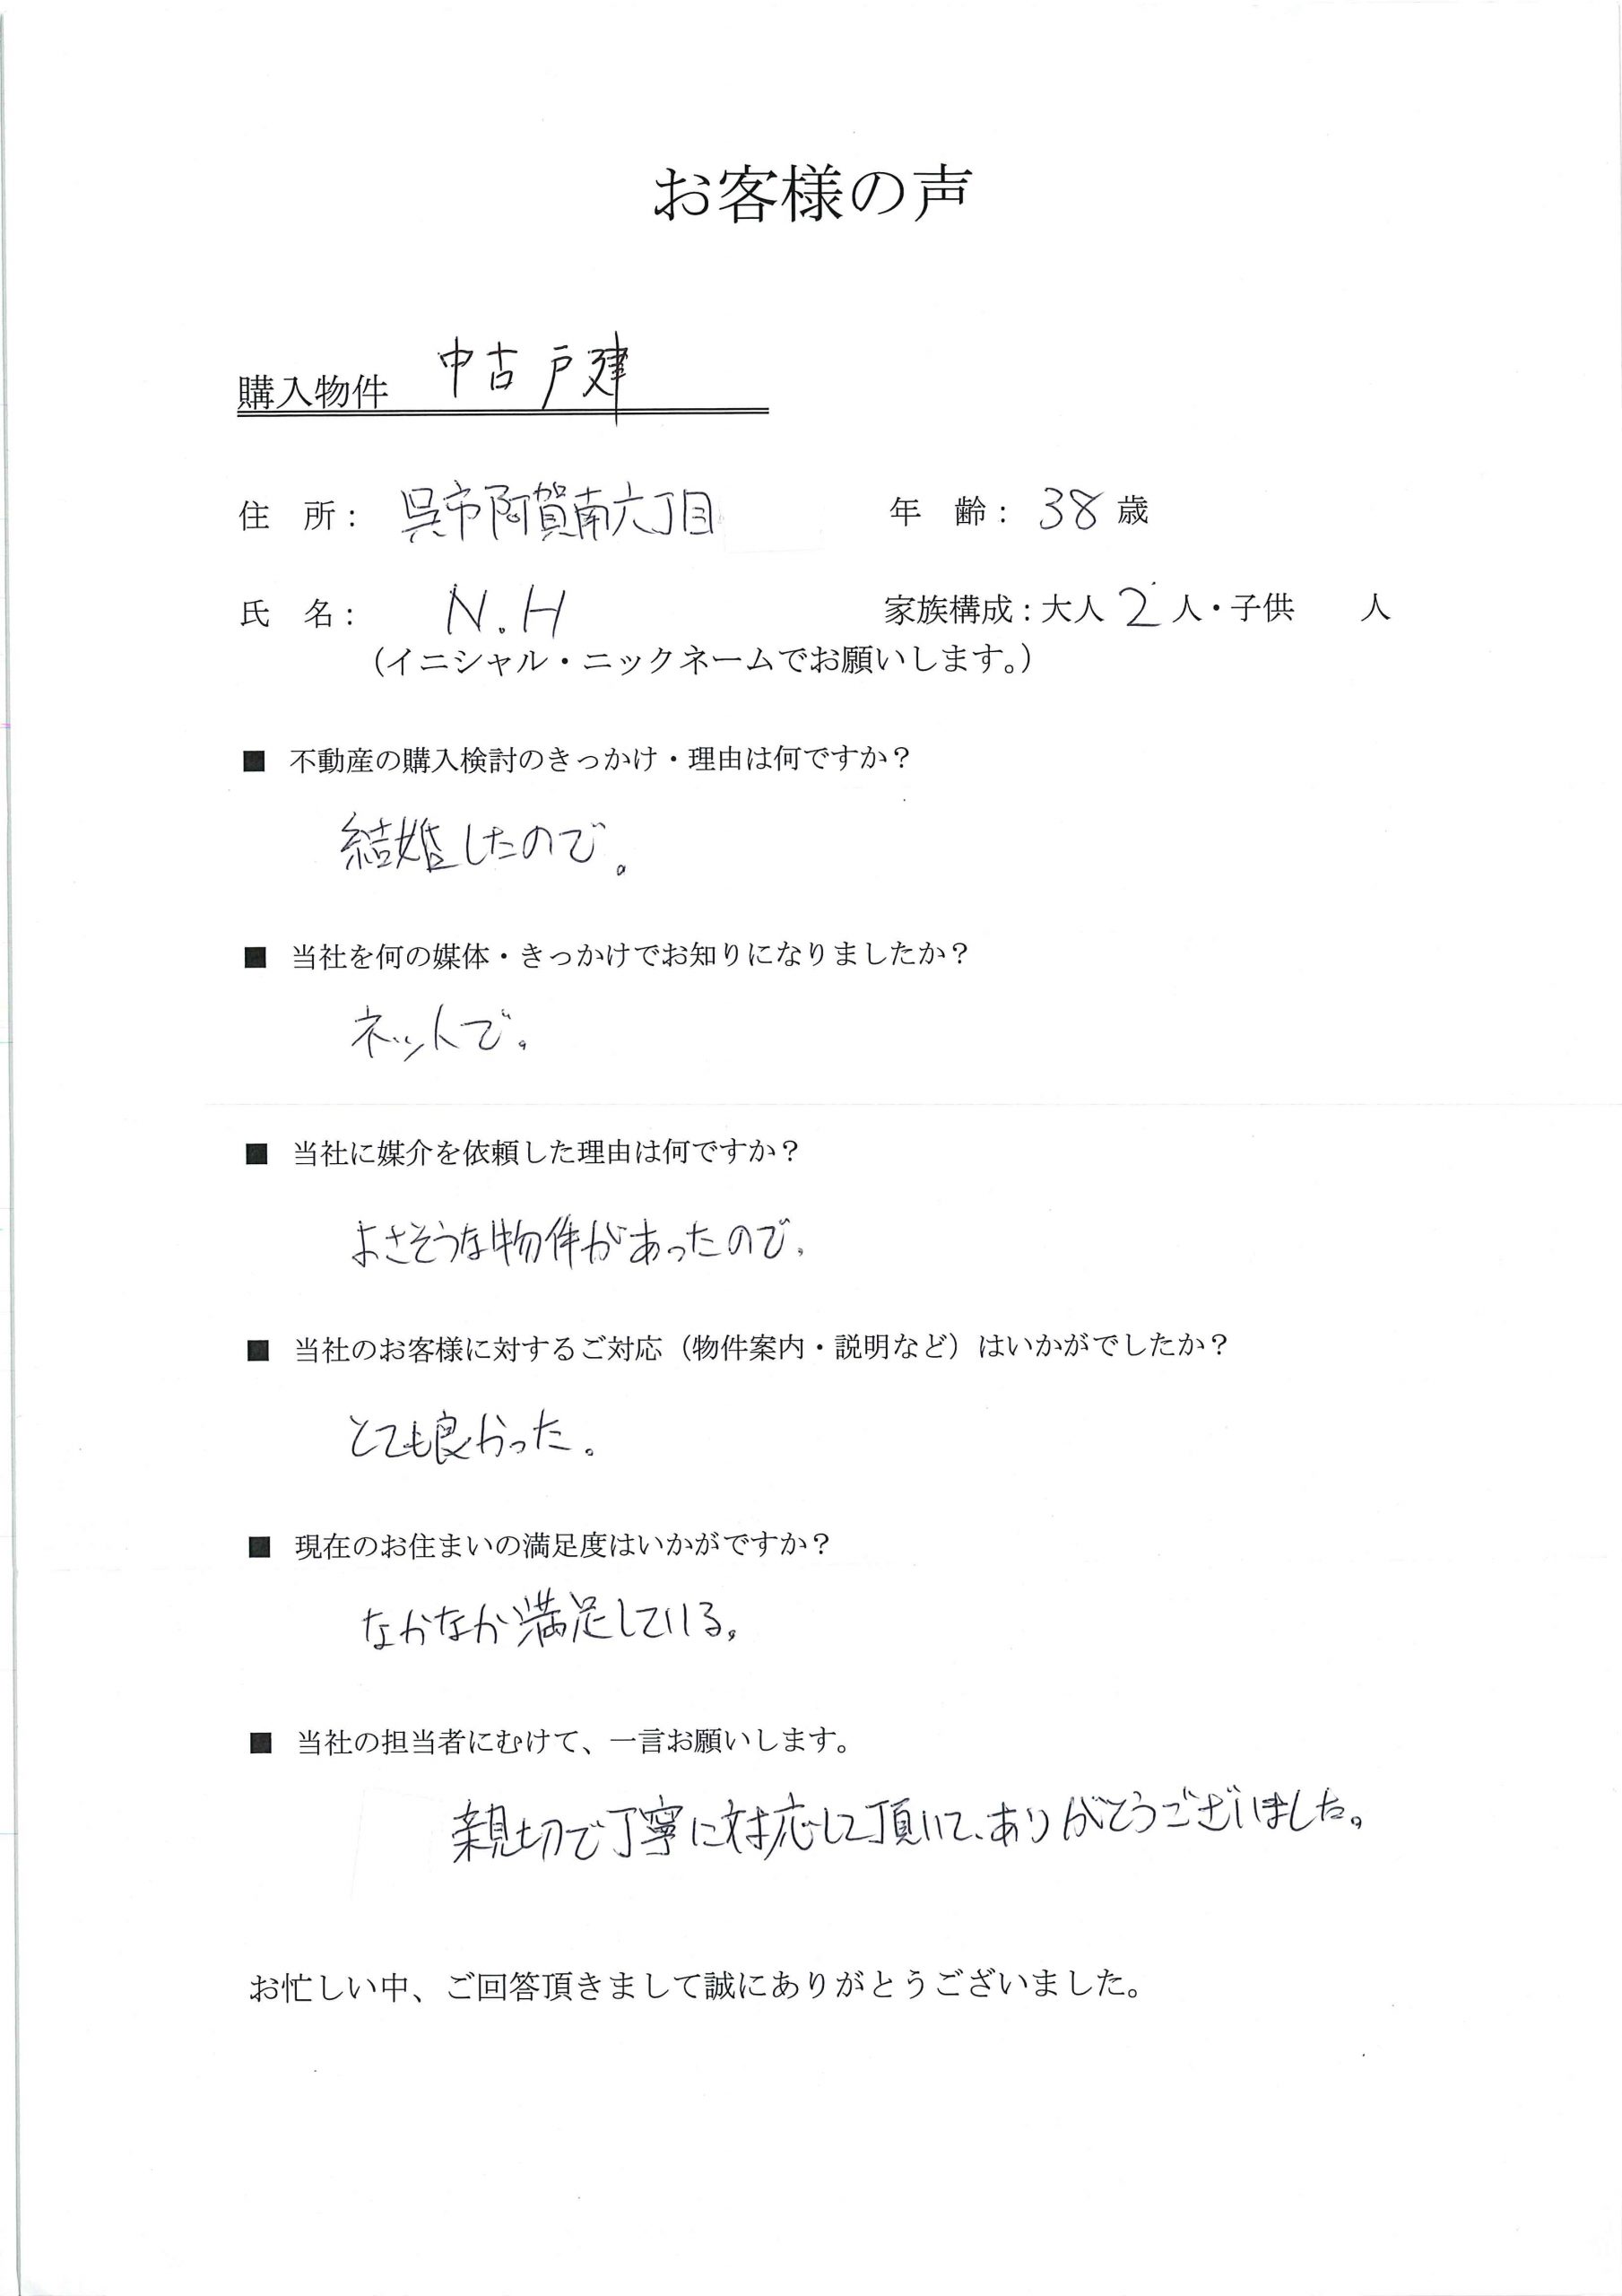 お客様の声
購入物件 中古戸建
住 所： 呉市阿賀南六丁目 年 齢： 38 歳
氏 名： N.H 家族構成：大人 2 人・子供 人
（イニシャル・ニックネームでお願いします。）
■ 不動産の購入検討のきっかけ・理由は何ですか？
結婚したので。
■ 当社を何の媒体・きっかけでお知りになりましたか？
ネットで。
■ 当社に媒介を依頼した理由は何ですか？
よさそうな物件があったので。
■ 当社のお客様に対するご対応（物件案内・説明など）はいかがでしたか？
とても良かった。
■ 現在のお住まいの満足度はいかがですか？
なかなか満足している。
■ 当社の担当者にむけて、一言お願いします。
親切で丁寧に対応して頂いて、ありがとうございました。
お忙しい中、ご回答頂きまして誠にありがとうございました。